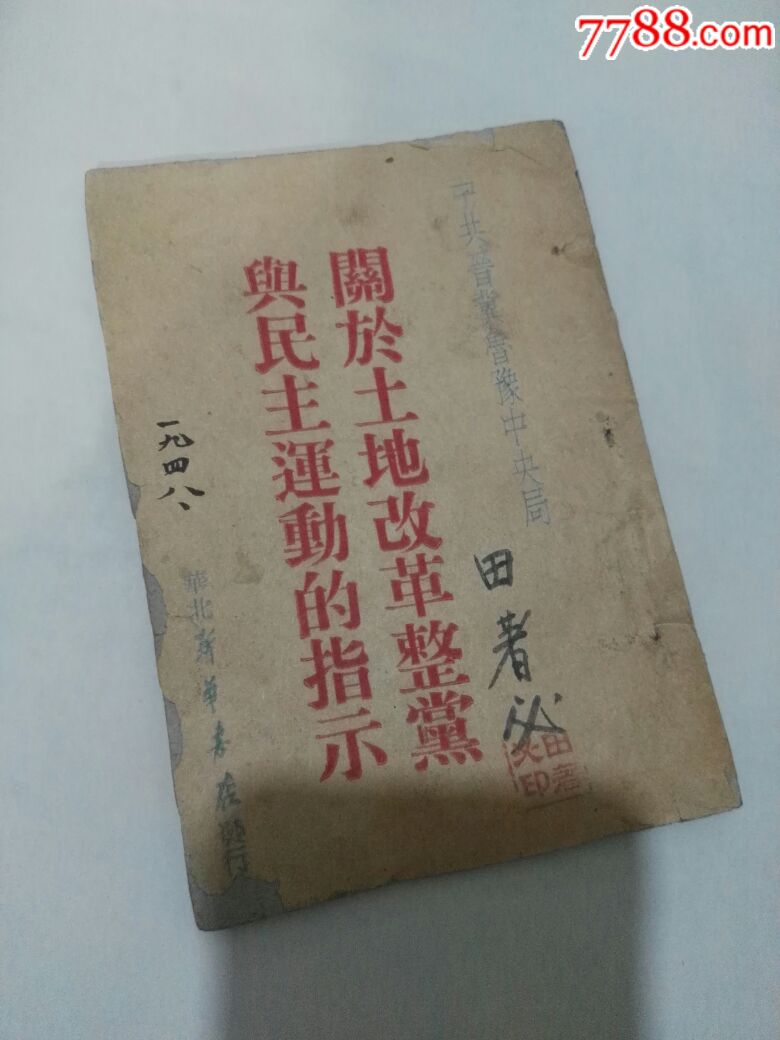 7788.com
中共晉冀魯豫中央局
關於土地改革整黨
與民主運動的指示
一九四八、
華北新華書店發行
田著
田著
印